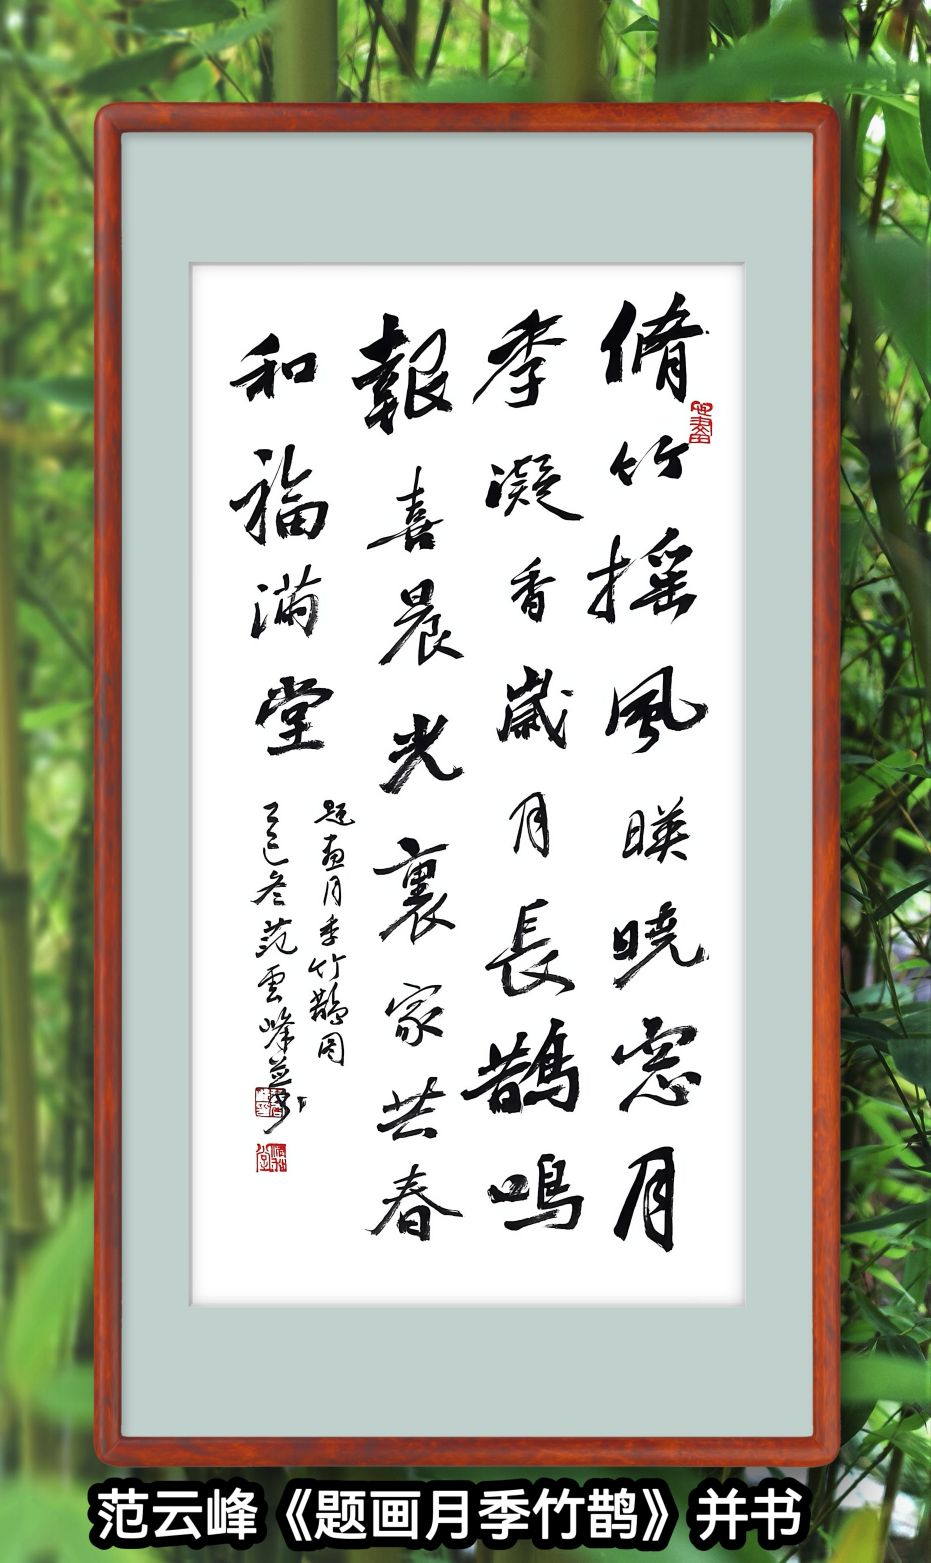 脩竹摇風暎晓窓月
季凝香歲月長鵲鳴
報喜晨光裏家共春
和福满堂
题画月季竹鹊图
乙巳冬范雲峰並书
范云峰《题画月季竹鹊》并书